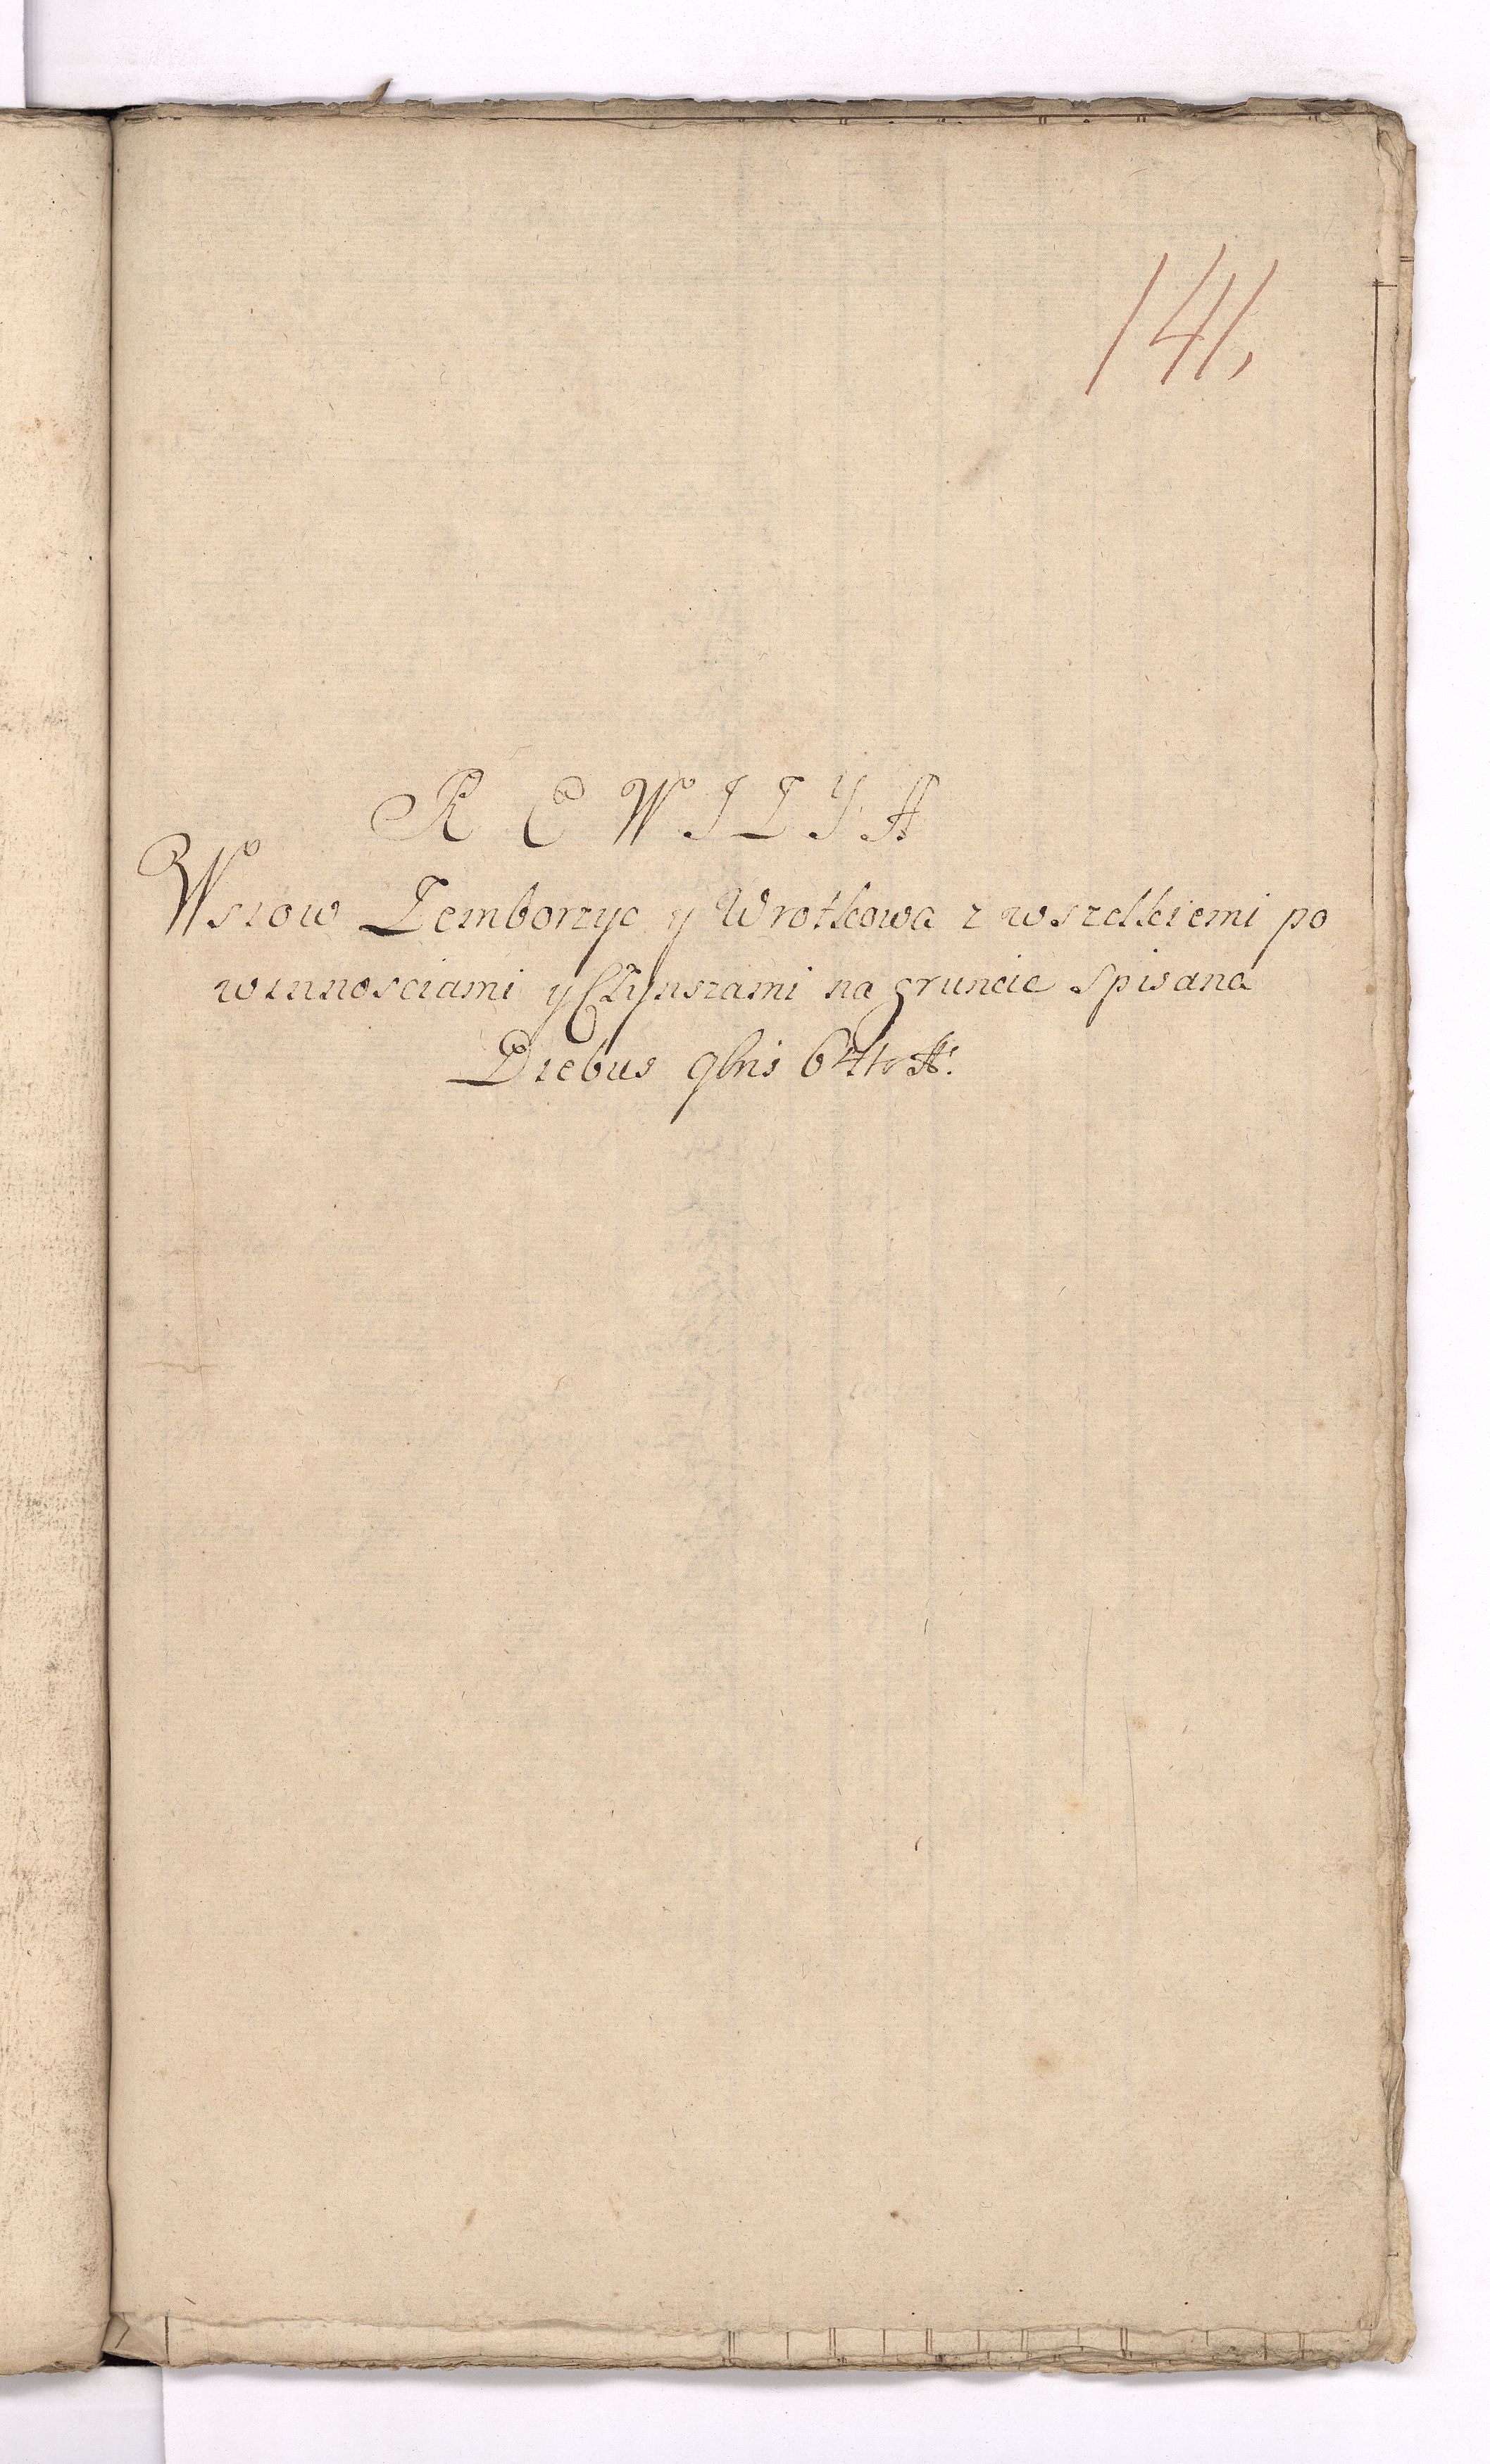 141,
REWIZYA
Wsiow Zemborzyc y Wrotkowa z wszelkiemi po
winnosciami y Czynszami na gruncie spisana
Diebus 9bris